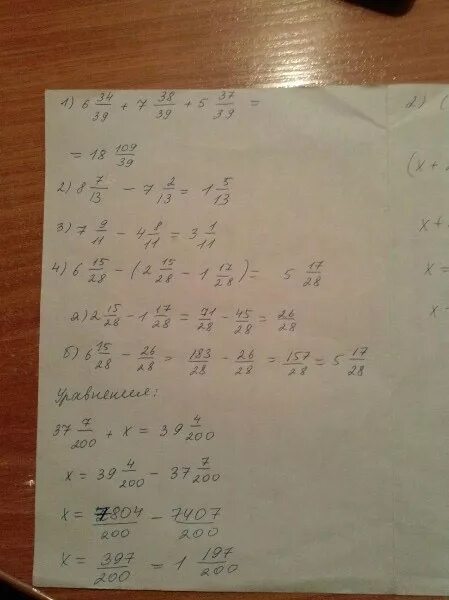 1) 6 34/39 + 7 38/39 + 5 37/39 =
= 18 109/39
2) 8 7/13 - 7 2/13 = 1 5/13
3) 7 9/11 - 4 8/11 = 3 1/11
4) 6 15/28 - (2 15/28 - 1 17/28) = 5 17/28
а) 2 15/28 - 1 17/28 = 71/28 - 45/28 = 26/28
б) 6 15/28 - 26/28 = 183/28 - 26/28 = 157/28 = 5 17/28
Уравнения:
37 7/200 + x = 39 4/200
x = 39 4/200 - 37 7/200
x = 7804/200 - 7407/200
x = 397/200 = 1 197/200
2) (
(x +
x +
x =
x =